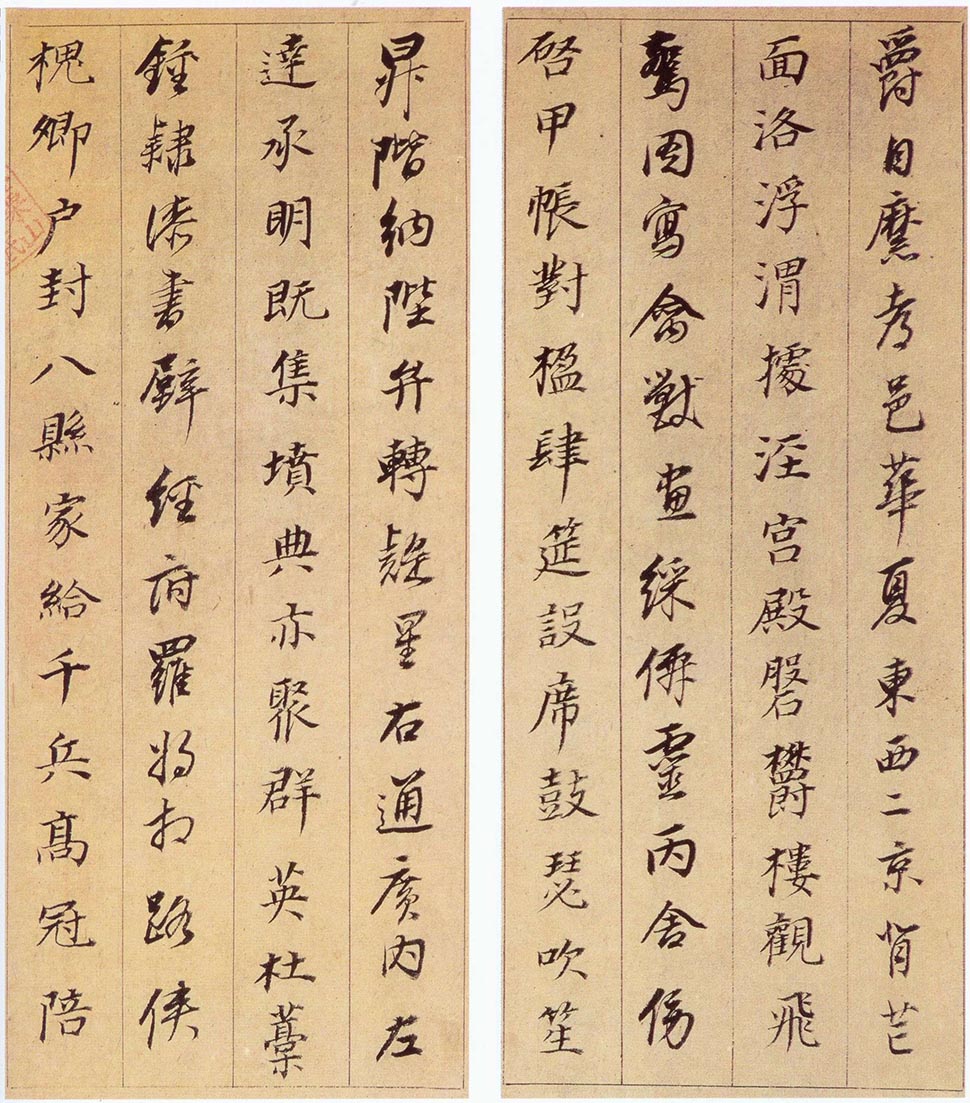 爵自縻都邑華夏東西二京背芒
面洛浮渭據涇宮殿磐鬱樓觀飛
驚圖寫禽獸畫綵僊靈丙舍傍
啓甲帳對楹肆筵設席鼓瑟吹笙
昇階納陛弁轉疑星右通廣內左
達承明既集墳典亦聚群英杜藁
鍾隸漆書壁經府羅將相路俠
槐卿户封八縣家給千兵高冠陪